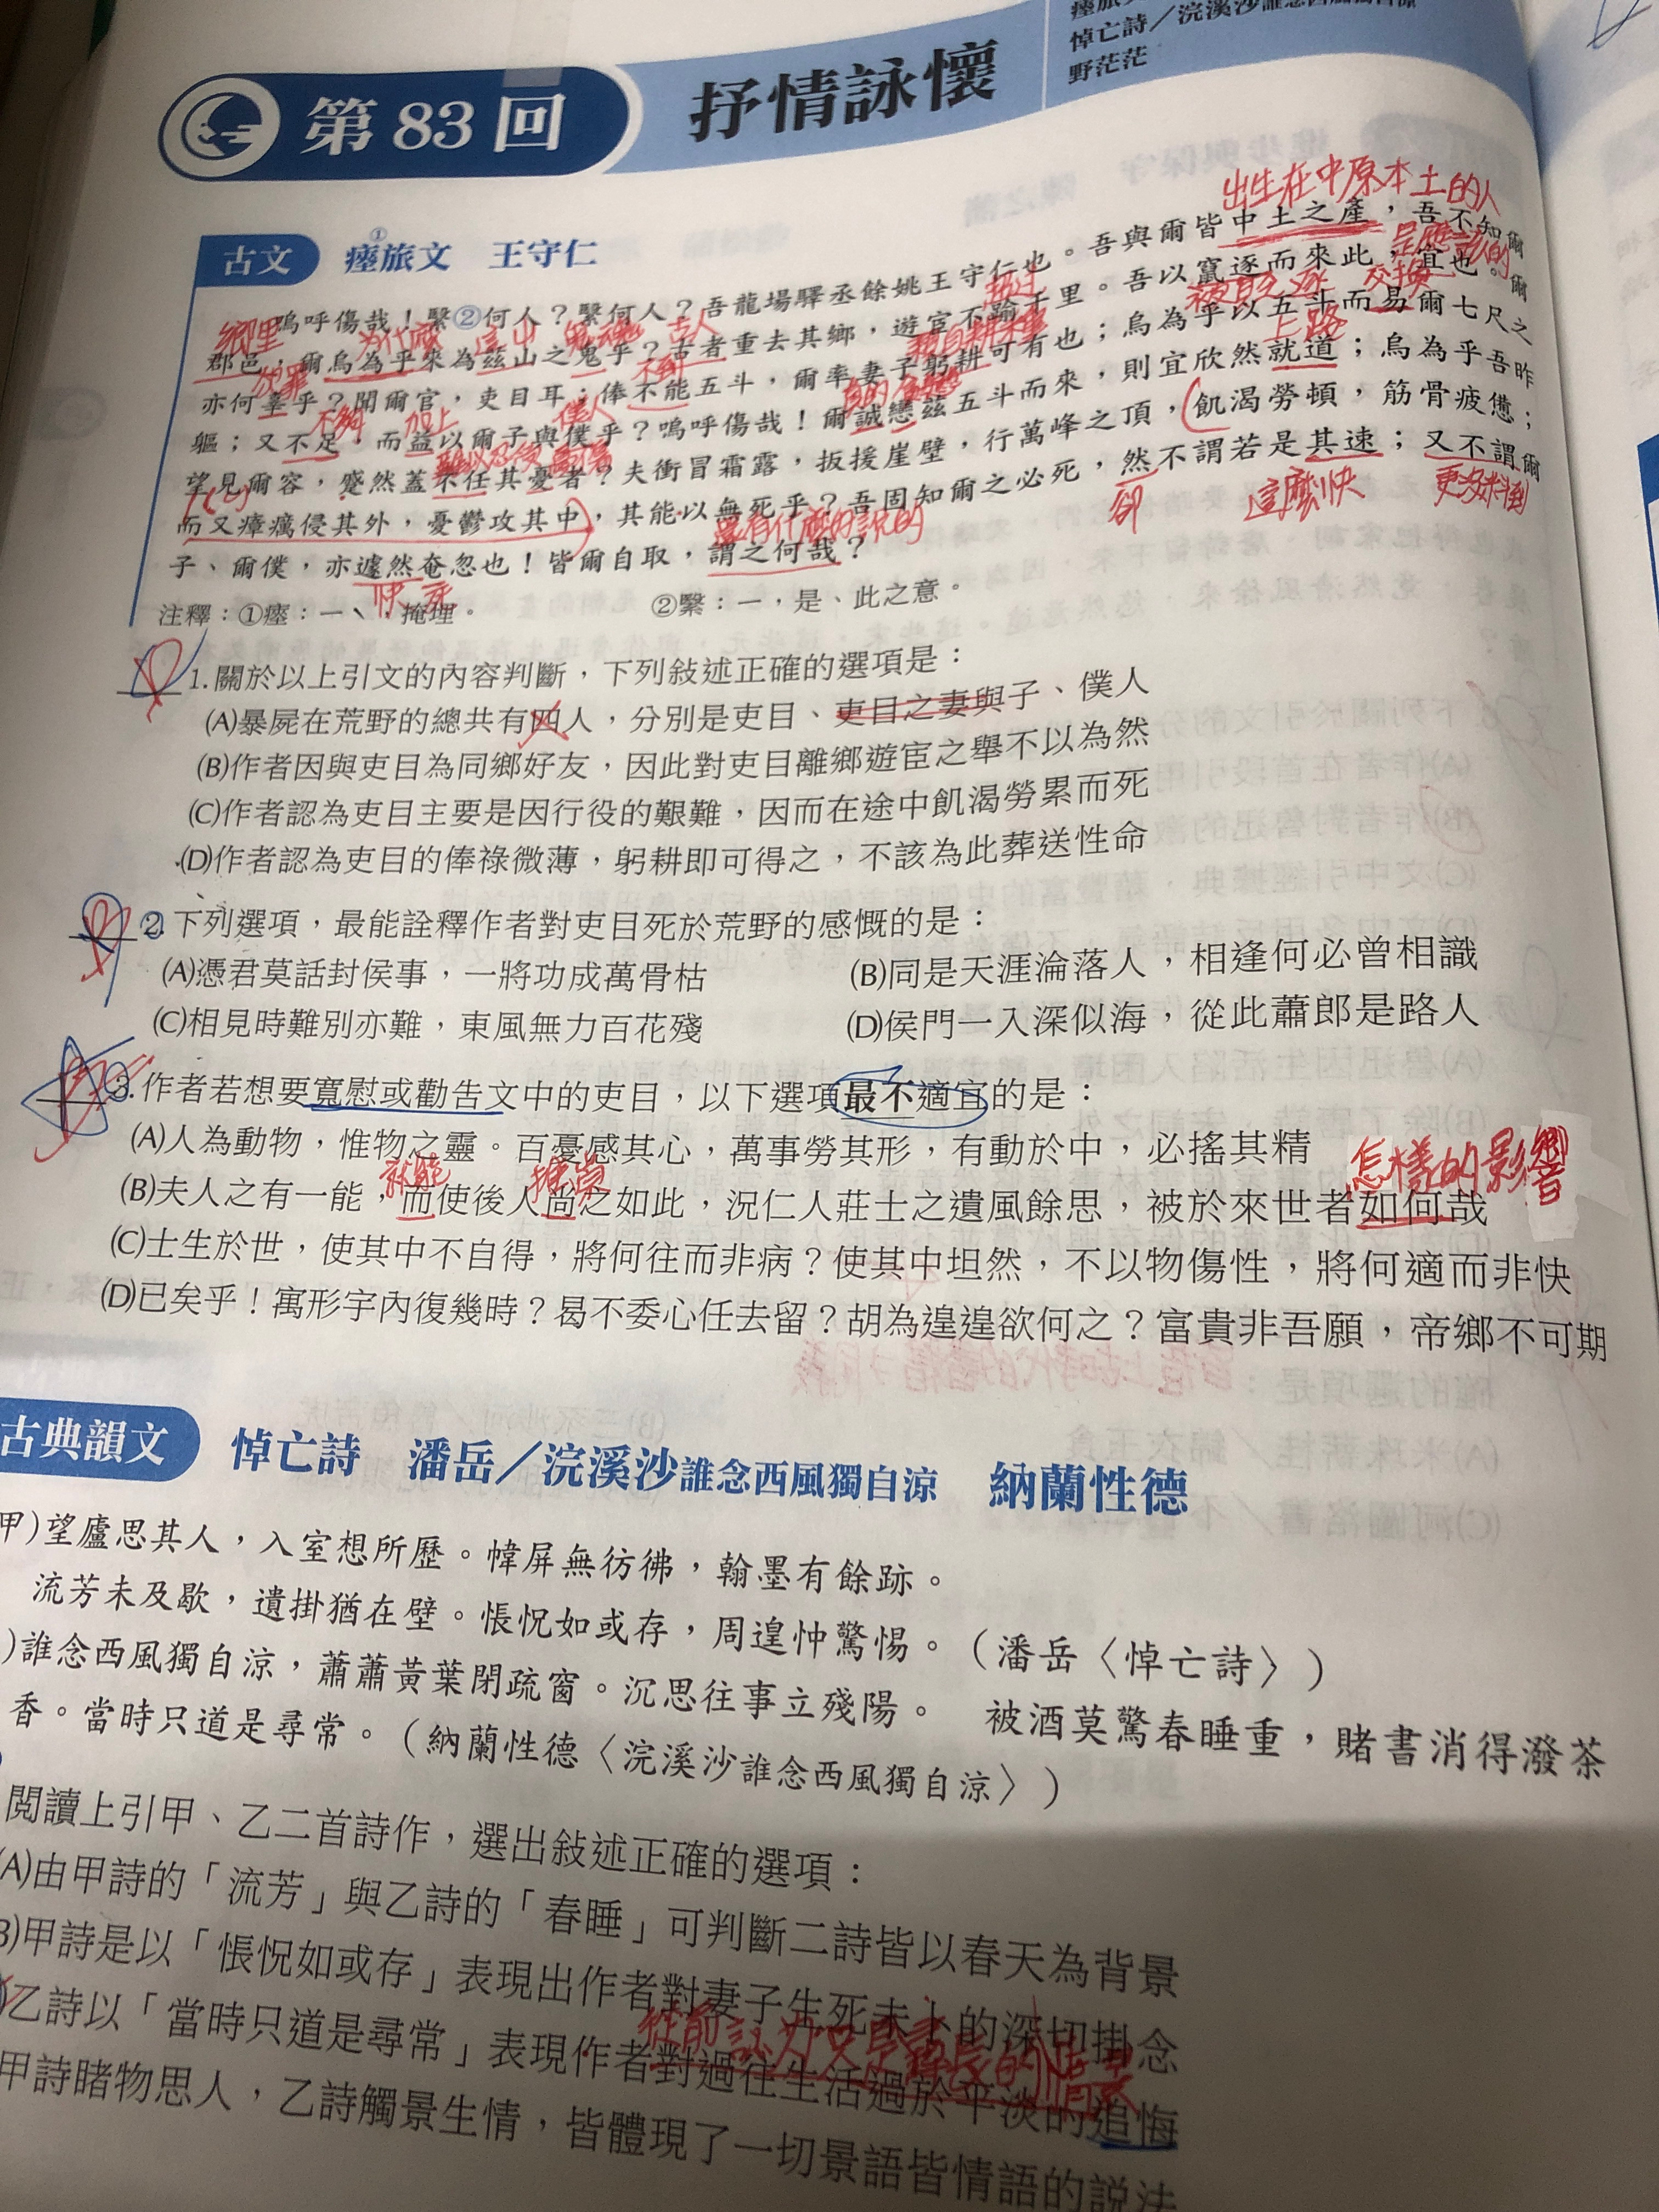 瘞旅文
悼亡詩／浣溪沙誰念西風獨自涼
野茫茫
第83回
抒情詠懷
出生在中原本土的人
古文 瘞旅文① 王守仁
嗚呼傷哉！繄②何人？繄何人？吾龍場驛丞餘姚王守仁也。吾與爾皆中土之產，吾不知爾
是應該的
鄉里 為什麼 這山 鬼魂 古人 超過 被貶逐 交換
郡邑，爾烏為乎來為茲山之鬼乎？古者重去其鄉，遊宦不踰千里。吾以竄逐而來此，宜也。爾
犯罪 不到 親自耕末事 上路
亦何辜乎？聞爾官，吏目耳；俸不能五斗，爾率妻子躬耕可有也；烏為乎以五斗而易爾七尺之
不夠 加上 僕人
軀；又不足，而益以爾子與僕乎？嗚呼傷哉！爾誠戀茲五斗而來，則宜欣然就道；烏為乎吾昨
望見爾容，蹙然蓋不任其憂者？夫衝冒霜露，扳援崖壁，行萬峰之頂，飢渴勞頓，筋骨疲憊；
而又瘴癘侵其外，憂鬱攻其中，其能以無死乎？吾固知爾之必死，然不謂若是其速；又不謂爾
還有什麼的說的 卻 這麼快 更沒料到
子、爾僕，亦遽然奄忽也！皆爾自取，謂之何哉？
快 死
注釋：①瘞：一ˋ，掩埋。 ②繄：一，是、此之意。
1.關於以上引文的內容判斷，下列敍述正確的選項是：
(A)暴屍在荒野的總共有四人，分別是吏目、吏目之妻與子、僕人
(B)作者因與吏目為同鄉好友，因此對吏目離鄉遊宦之舉不以為然
(C)作者認為吏目主要是因行役的艱難，因而在途中飢渴勞累而死
(D)作者認為吏目的俸祿微薄，躬耕即可得之，不該為此葬送性命
2.下列選項，最能詮釋作者對吏目死於荒野的感慨的是：
(A)憑君莫話封侯事，一將功成萬骨枯 (B)同是天涯淪落人，相逢何必曾相識
(C)相見時難別亦難，東風無力百花殘 (D)侯門一入深似海，從此蕭郎是路人
3.作者若想要寬慰或勸告文中的吏目，以下選項最不適宜的是：
(A)人為動物，惟物之靈。百憂感其心，萬事勞其形，有動於中，必搖其精
就能 推崇 怎樣的影響
(B)夫人之有一能，而使後人尚之如此，況仁人莊士之遺風餘思，被於來世者如何哉
(C)士生於世，使其中不自得，將何往而非病？使其中坦然，不以物傷性，將何適而非快
(D)已矣乎！寓形宇內復幾時？曷不委心任去留？胡為遑遑欲何之？富貴非吾願，帝鄉不可期
古典韻文 悼亡詩 潘岳／浣溪沙誰念西風獨自涼 納蘭性德
甲)望廬思其人，入室想所歷。幃屏無彷彿，翰墨有餘跡。
流芳未及歇，遺掛猶在壁。悵怳如或存，周遑忡驚惕。（潘岳〈悼亡詩〉）
)誰念西風獨自涼，蕭蕭黃葉閉疏窗。沉思往事立殘陽。 被酒莫驚春睡重，賭書消得潑茶
香。當時只道是尋常。（納蘭性德〈浣溪沙誰念西風獨自涼〉）
閱讀上引甲、乙二首詩作，選出敍述正確的選項：
(A)由甲詩的「流芳」與乙詩的「春睡」可判斷二詩皆以春天為背景
B)甲詩是以「悵怳如或存」表現出作者對妻子生死未卜的深切掛念
從前認為只是尋常的情景
)乙詩以「當時只道是尋常」表現作者對過往生活過於平淡的追悔
甲詩睹物思人，乙詩觸景生情，皆體現了一切景語皆情語的說法